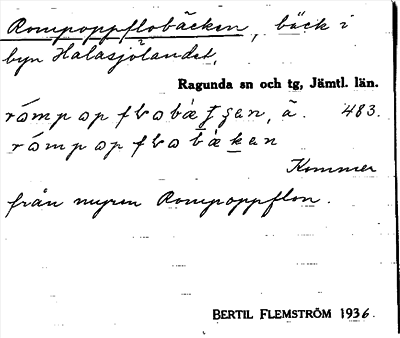 Rompoppflobäcken, bäck i
byn Halasjölandet,
Ragunda sn och tg, Jämtl. län.
483.
Kommer
från myren Rompoppflon.
BERTIL FLEMSTRÖM 1936.